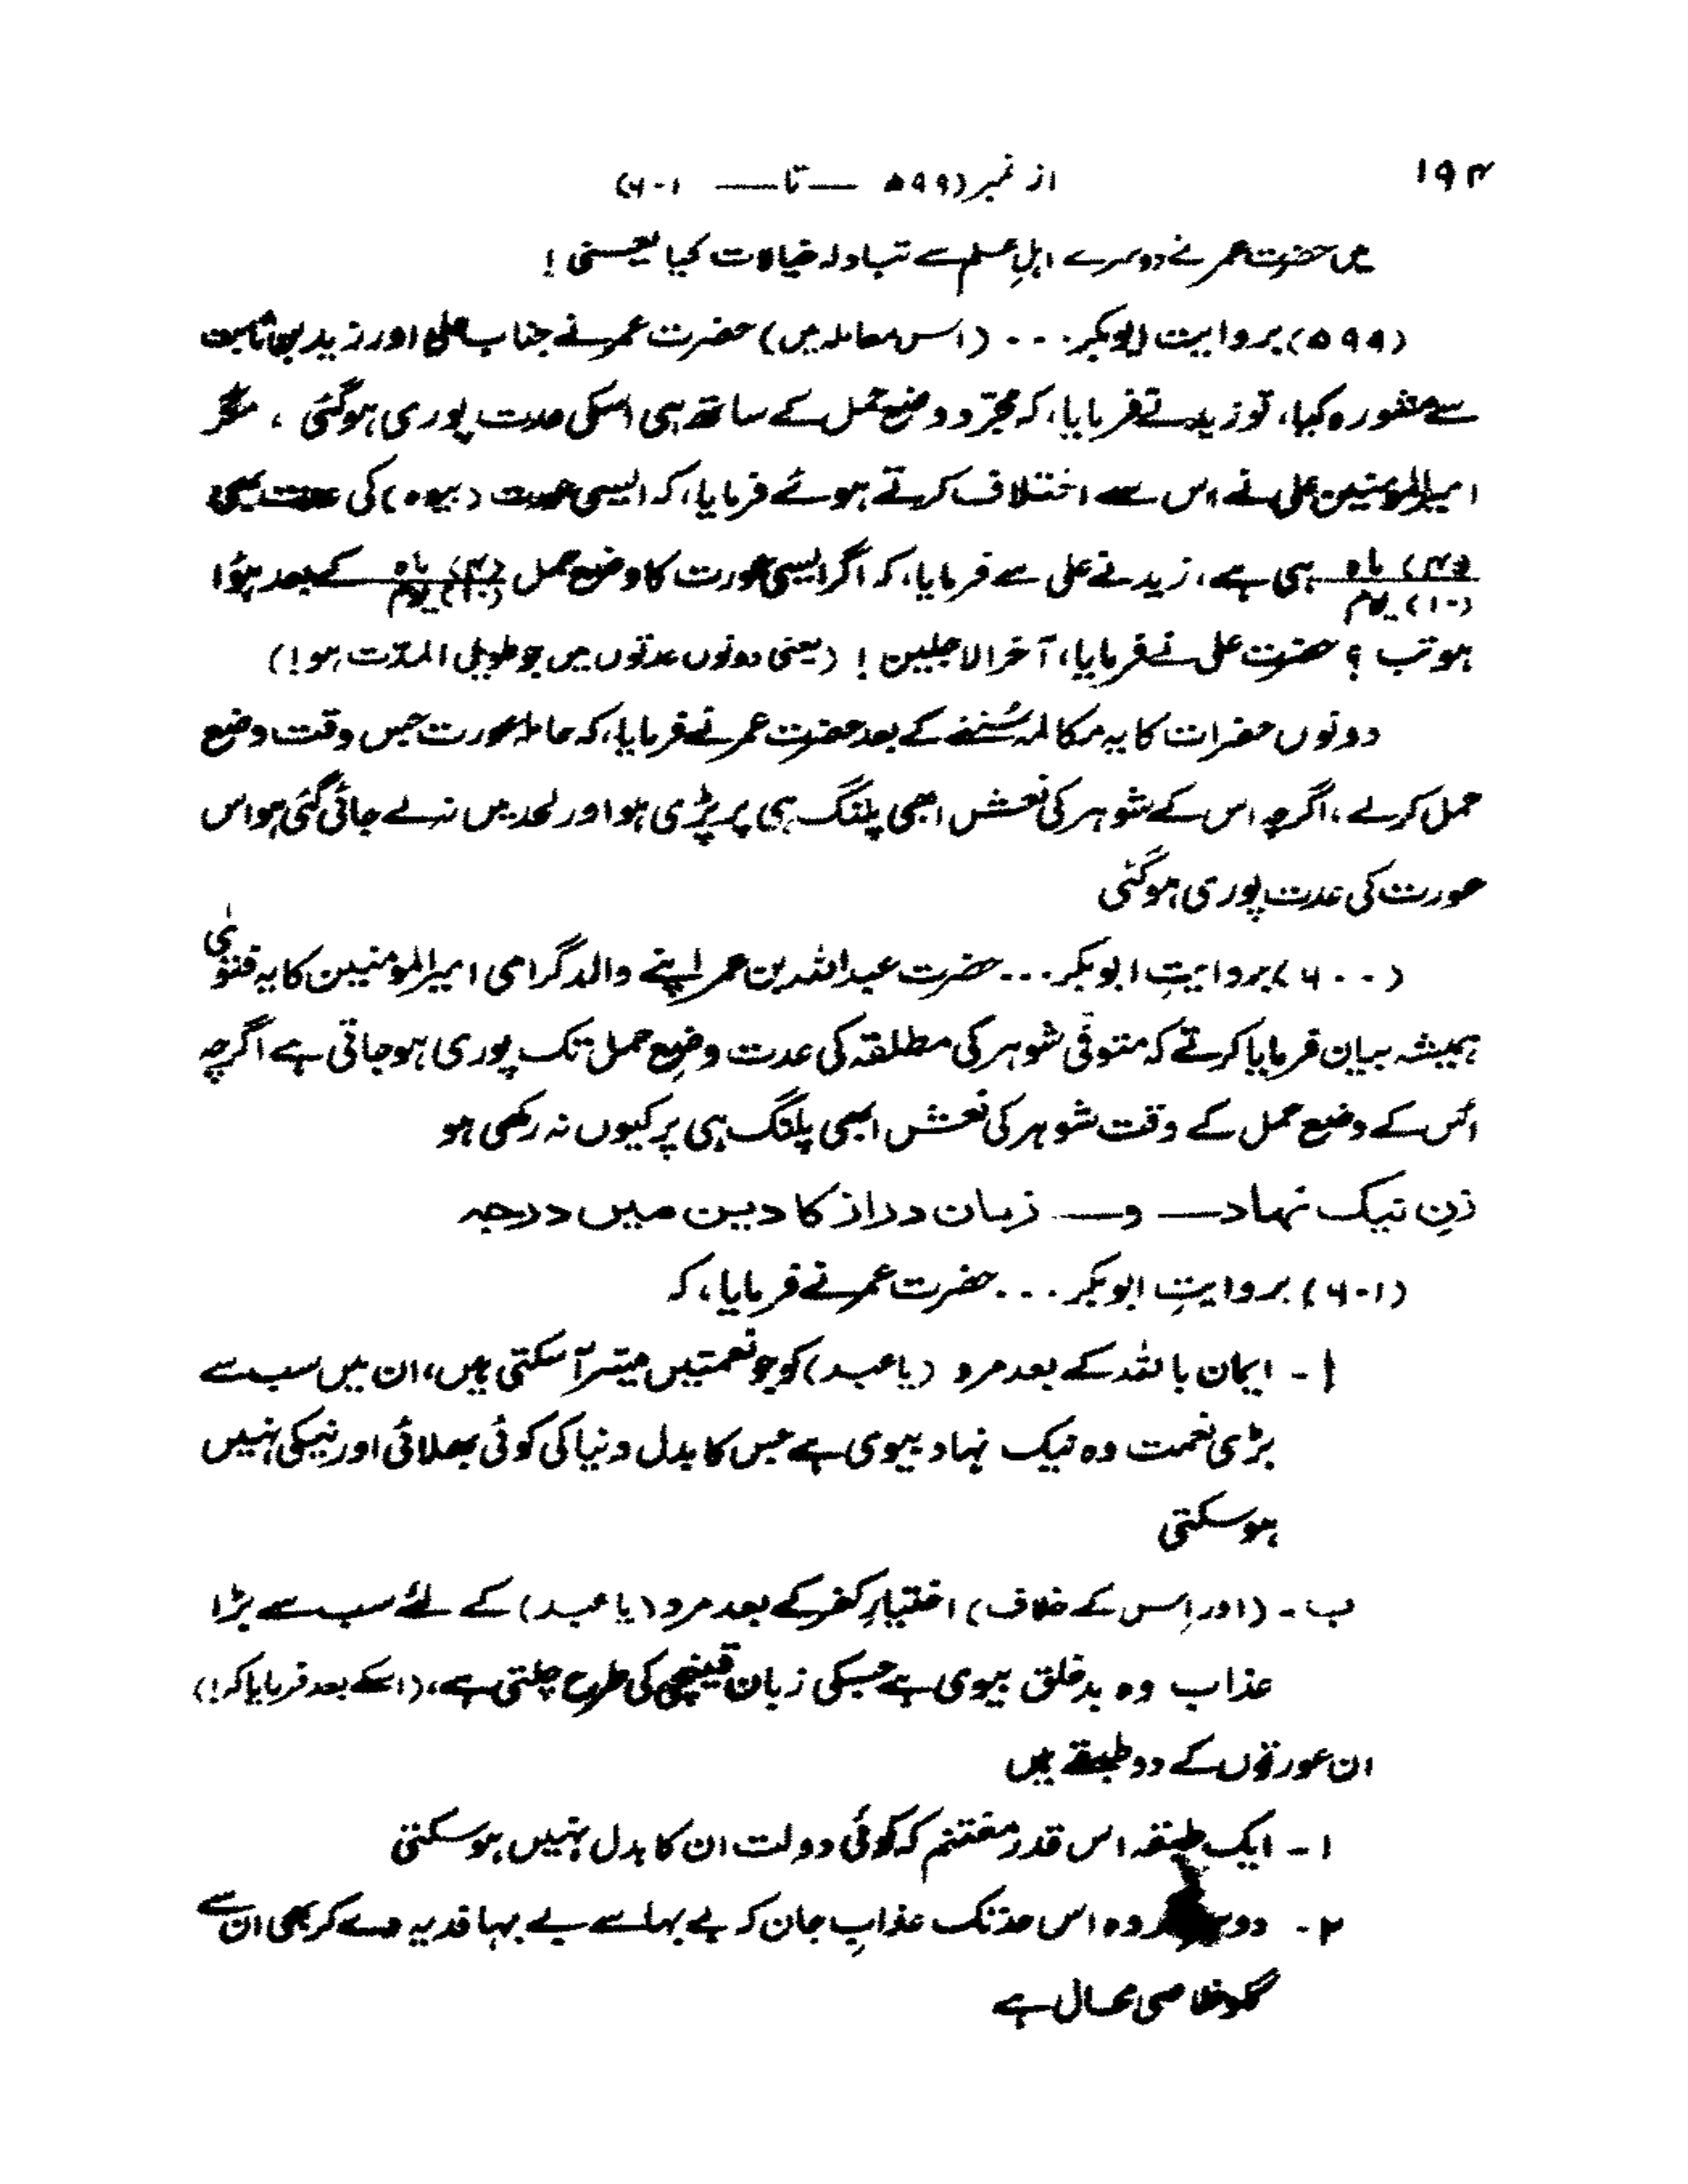 ۱۹۴
از نمبر (۵۹۹ — تا — ۶۰۱)
میں حضرت عمر نے دوسرے اہلِ علم سے تبادلہ خیالات کیا یعنی!
(۵۹۹) بروایت ابوبکر ... (اس معاملہ میں) حضرت عمر نے جناب علی اور زید بن ثابت
سے مشورہ کیا، تو زید نے فرمایا، کہ مجرّد وضع حمل کے ساتھ ہی اسکی عدت پوری ہوگئی، مگر
امیر المومنین علی نے اس سے اختلاف کرتے ہوئے فرمایا، کہ ایسی عورت (بیوہ) کی عدت بھی
(۴) ماہ (۱۰) یوم ہی ہے، زید نے علی سے فرمایا، کہ اگر ایسی عورت کا وضع حمل (۴) ماہ (۱۰) یوم کے بعد ہؤا
ہو تب ؟ حضرت علی نے فرمایا، آخر الاجلین ! (یعنی دونوں عدتوں میں جو طویل المدّت ہو!)
دونوں حضرات کا یہ مکالمہ سُننے کے بعد حضرت عمر نے فرمایا، کہ حاملہ عورت جس وقت وضع
حمل کرلے، اگرچہ اس کے شوہر کی نعش ابھی پلنگ ہی پر پڑی ہو اور لحد میں نہ لے جائی گئی ہو اس
عورت کی عدت پوری ہوگئی
(۶۰۰) بروایتِ ابوبکر ... حضرت عبداللہ بن عمر اپنے والد گرامی امیر المومنین کا یہ فتویٰ
ہمیشہ بیان فرمایا کرتے کہ متوفّی شوہر کی مطلقہ کی عدت وضعِ حمل تک پوری ہوجاتی ہے اگرچہ
اُس کے وضع حمل کے وقت شوہر کی نعش ابھی پلنگ ہی پر کیوں نہ رکھی ہو
زنِ نیک نہاد — و — زبان دراز کا دین میں درجہ
(۶۰۱) بروایتِ ابوبکر ... حضرت عمر نے فرمایا، کہ
ا - ایمان باللہ کے بعد مرد (یا عبد) کو جو نعمتیں میسّر آ سکتی ہیں، ان میں سب سے
بڑی نعمت وہ نیک نہاد بیوی ہے جس کا بدل دنیا کی کوئی بھلائی اور نیکی نہیں
ہوسکتی
ب - (اور اِس کے خلاف) اختیارِ کفر کے بعد مرد (یا عبد) کے لئے سب سے بڑا
عذاب وہ بدخلق بیوی ہے جسکی زبان قینچی کی طرح چلتی ہے، (اسکے بعد فرمایا کہ!)
ان عورتوں کے دو طبقے ہیں
۱ - ایک طبقہ اس قدر مغتنم کہ کوئی دولت ان کا بدل نہیں ہوسکتی
۲ - وہ اس حد تک عذابِ جان کہ بے بہا سے بے بہا فدیہ دے کر بھی ان سے
گلوخلاصی محال ہے